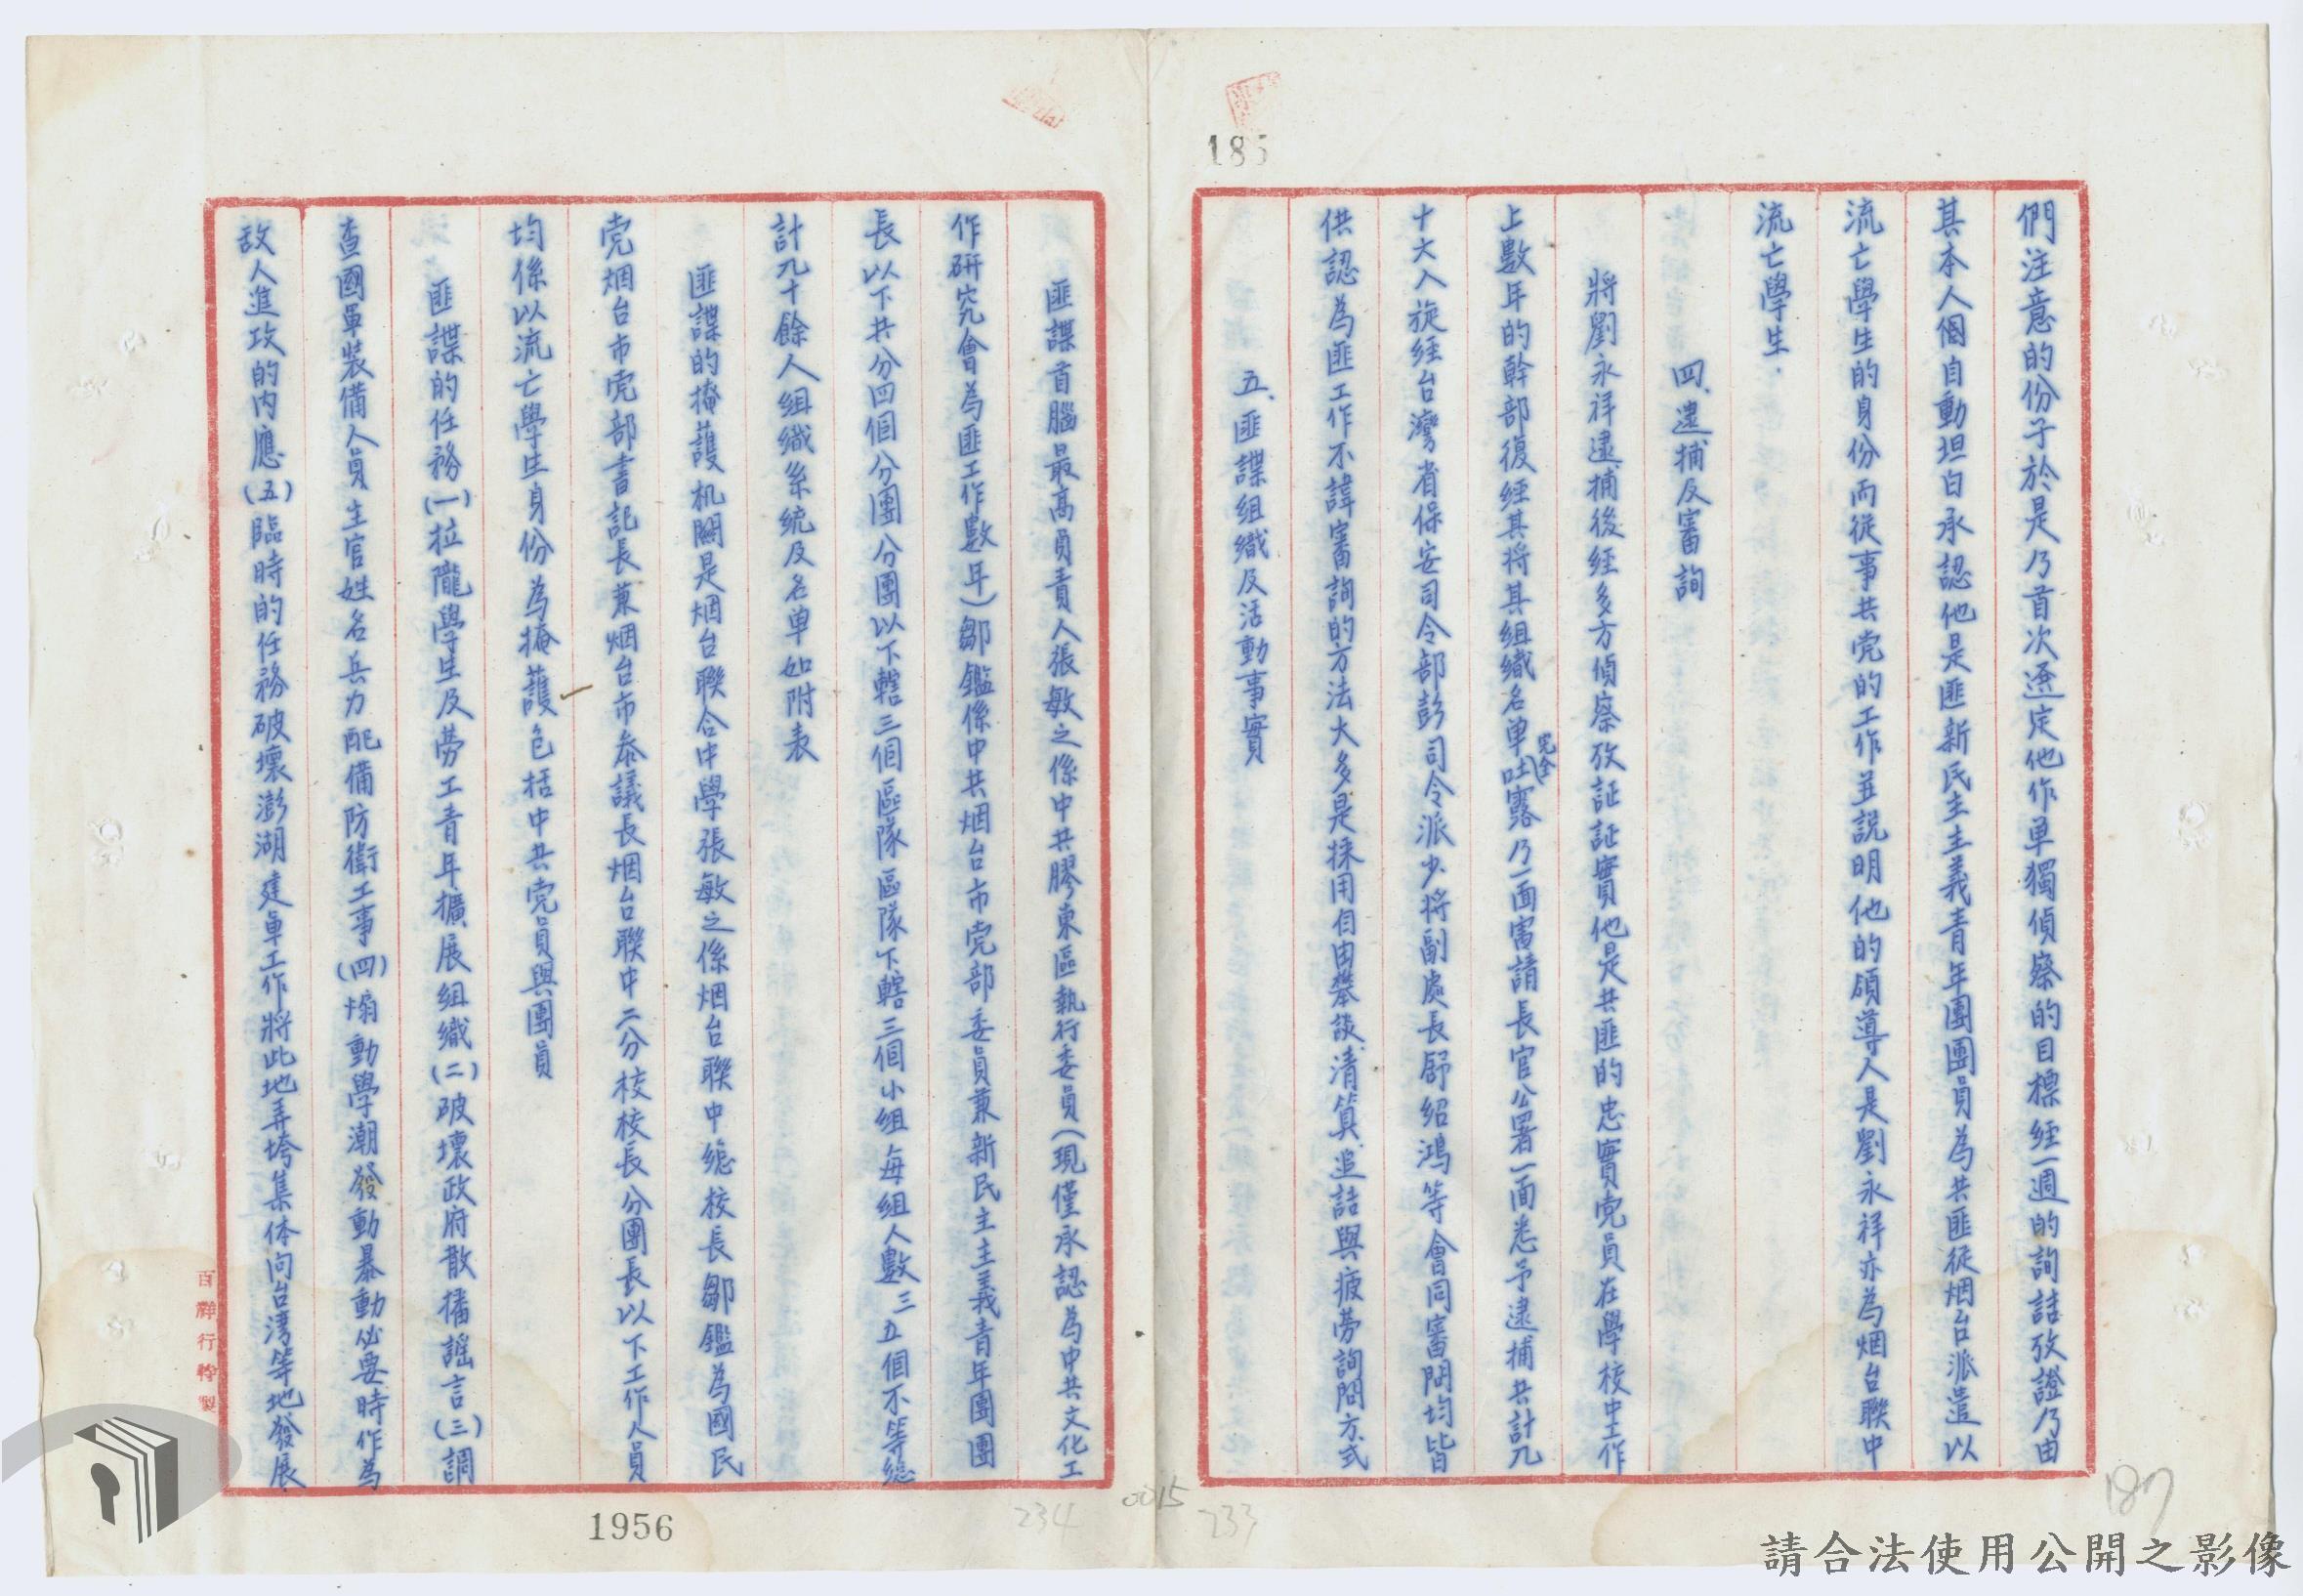 185
們注意的份子於是乃首次選定他作单獨偵察的目標經一週的詢話攷證乃由
其本人個自動坦白承認他是匪新民主主義青年團團員為共匪從烟台派遣以
流亡學生的身份而從事共党的工作並説明他的領導人是劉永祥亦為烟台聯中
流亡學生.
四、逮捕及審詢
將劉永祥逮捕後經多方偵察攷証証實他是共匪的忠實党員在學校中工作
上數年的幹部復經其将其組織名单完全吐露乃一面電請長官公署一面悉予逮捕共計九
十六人旋經台灣省保安司令部彭司令派少将副處長舒紹鴻等會同審問均皆
供認為匪工作不諱審詢的方法大多是採用自由攀談、清算、追詰與疲勞詢問方式
五、匪諜組織及活動事實
匪諜首腦最高負責人張敏之係中共膠東區執行委員(現僅承認為中共文化工
作研究會為匪工作數年)鄒鑑係中共烟台市党部委員兼新民主主義青年團團
長以下共分四個分團分團以下轄三個區隊區隊下轄三個小組每組人數三五個不等總
計九十餘人組織系統及名单如附表
匪諜的掩護机關是烟台聯合中學張敏之係烟台聯中總校長鄒鑑為國民
党烟台市党部書記長兼烟台市参議長烟台聯中二分校校長分團長以下工作人員
均係以流亡學生身份為掩護包括中共党員與團員
匪諜的任務(一)拉隴學生及勞工青年擴展組織(二)破壞政府散播謡言(三)調
查國軍装備人員主官姓名兵力配備防衛工事(四)煽動學潮發動暴動必要時作為
敌人進攻的内應(五)臨時的任務破壞澎湖建軍工作將此地弄垮集体向台湾等地發展
百祥行特製
1956
234
0015
233
187
請合法使用公開之影像